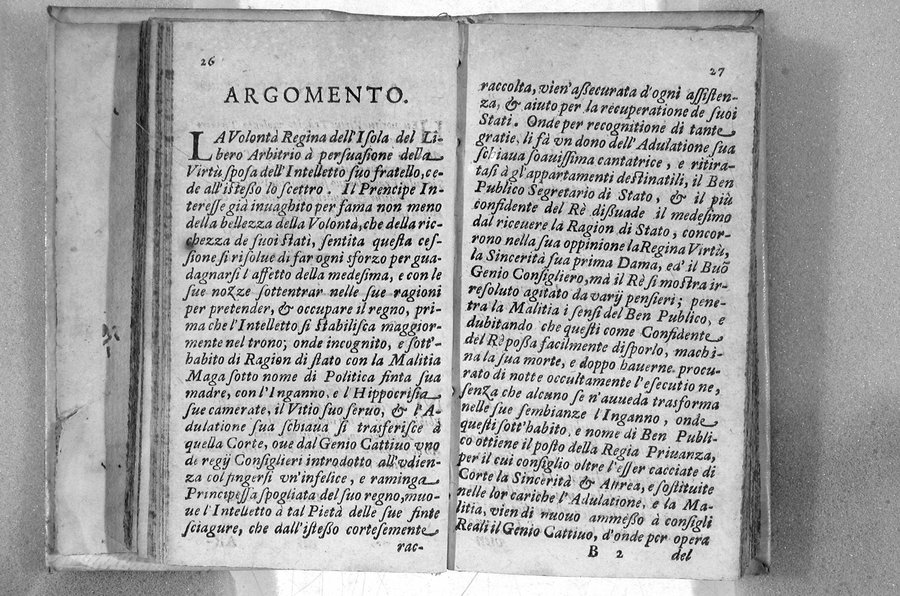 26
ARGOMENTO.
LA Volontà Regina dell'Isola del Li-
bero Arbitrio à persuasione della
Virtù sposa dell'Intelletto suo fratello, ce-
de all'istesso lo scettro. Il Prencipe In-
teresse già inuaghito per fama non meno
della bellezza della Volontà, che della ric-
chezza de suoi stati, sentita questa ces-
sione si risolue di far ogni sforzo per gua-
dagnarsi l'affetto della medesima, e con le
sue nozze sottentrar nelle sue ragioni
per pretender, & occupare il regno, pri-
ma che l'Intelletto si stabilisca maggior-
mente nel trono; onde incognito, e sott'-
habito di Ragion di stato con la Malitia
Maga sotto nome di Politica finta sua
madre, con l'Inganno, e l'Hippocrisia
sue camerate, il Vitio suo seruo, & l'A-
dulatione sua schiaua si trasferisce à
quella Corte, oue dal Genio Cattiuo vno
de regij Consiglieri introdotto all'vdien-
za col fingersi vn'infelice, e raminga
Principessa spogliata del suo regno, muo-
ue l'Intelletto à tal Pietà delle sue finte
sciagure, che dall'istesso cortesemente
rac-
27
raccolta, vien'assecurata d'ogni assisten-
za, & aiuto per la recuperatione de suoi
Stati. Onde per recognitione di tante
gratie, li fà vn dono dell'Adulatione sua
schiaua soauissima cantatrice, e ritira-
tasi à gl'appartamenti destinatili, il Ben
Publico Segretario di Stato, & il più
confidente del Rè dissuade il medesimo
dal riceuere la Ragion di Stato, concor-
rono nella sua oppinione la Regina Virtù,
la Sincerità sua prima Dama, ed'il Buō
Genio Consigliero, mà il Rè si mostra ir-
resoluto agitato da varij pensieri; pene-
tra la Malitia i sensi del Ben Publico, e
dubitando che questi come Confidente
del Rè possa facilmente disporlo, machi-
na la sua morte, e doppo hauerne procu-
rato di notte occultamente l'esecutione,
senza che alcuno se n'auueda trasforma
nelle sue sembianze l'Inganno, onde
questi sott'habito, e nome di Ben Publi-
co ottiene il posto della Regia Priuanza,
per il cui consiglio oltre l'esser cacciate di
Corte la Sincerità & Astrea, e sostituite
nelle lor cariche l'Adulatione, e la Ma-
litia, vien di nuouo ammesso à consigli
Reali il Genio Cattiuo, d'onde per opera
B 2 del